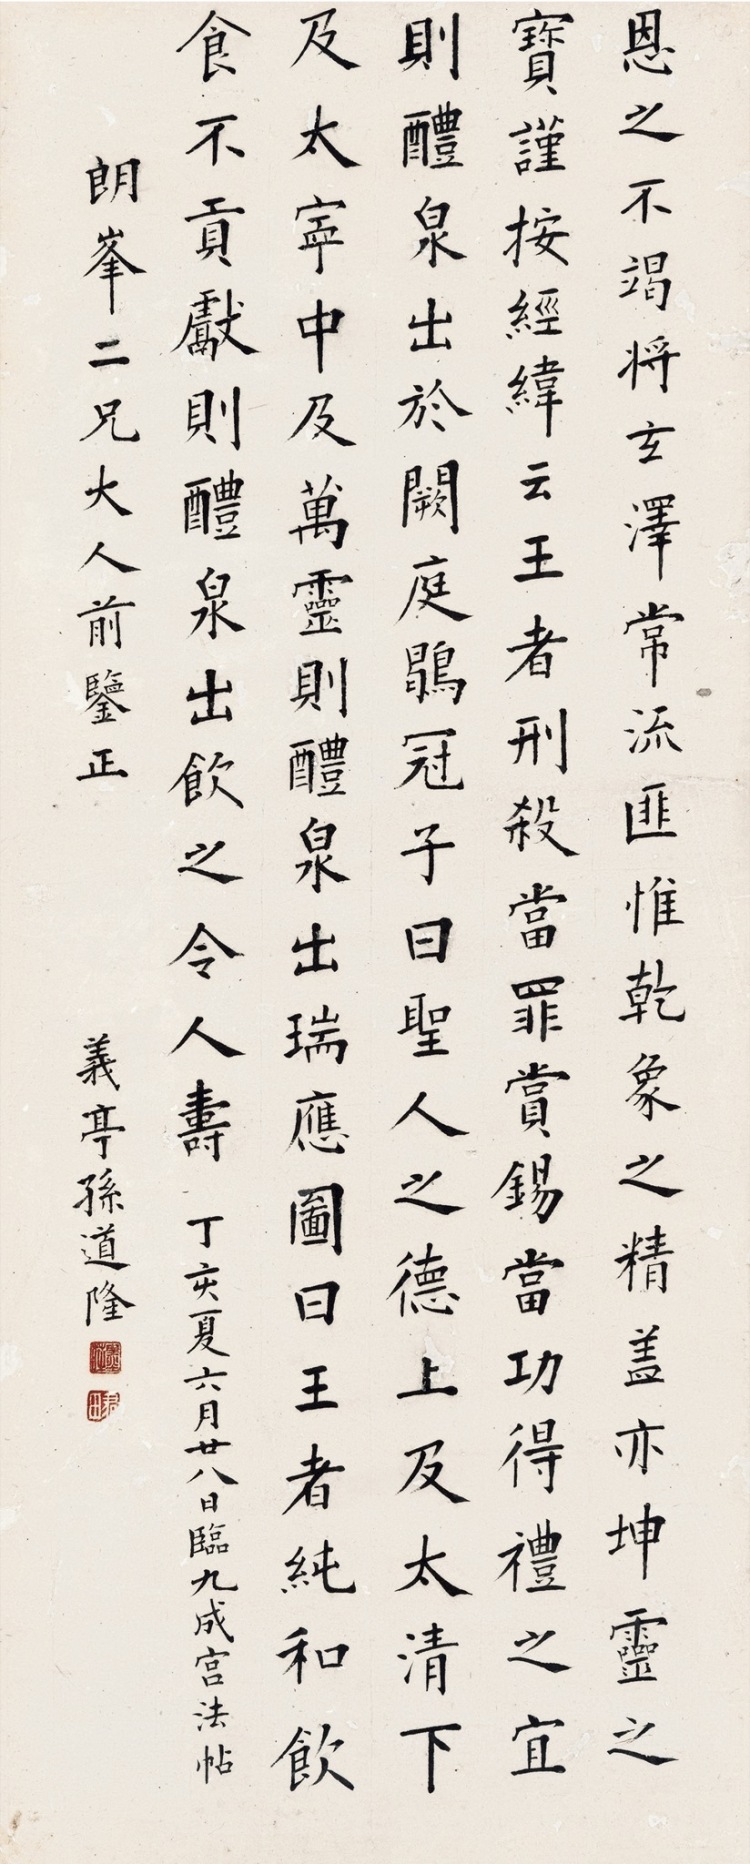 恩之不竭将玄澤常流匪惟乾象之精盖亦坤靈之
寶謹按經緯云王者刑殺當罪賞錫當功得禮之宜
則醴泉出於闕庭鶡冠子曰聖人之德上及太清下
及太寧中及萬靈則醴泉出瑞應圖曰王者純和飲
食不貢獻則醴泉出飲之令人壽
丁亥夏六月廿八日臨九成宮法帖
朗峯二兄大人前鑒正
義亭孫道隆